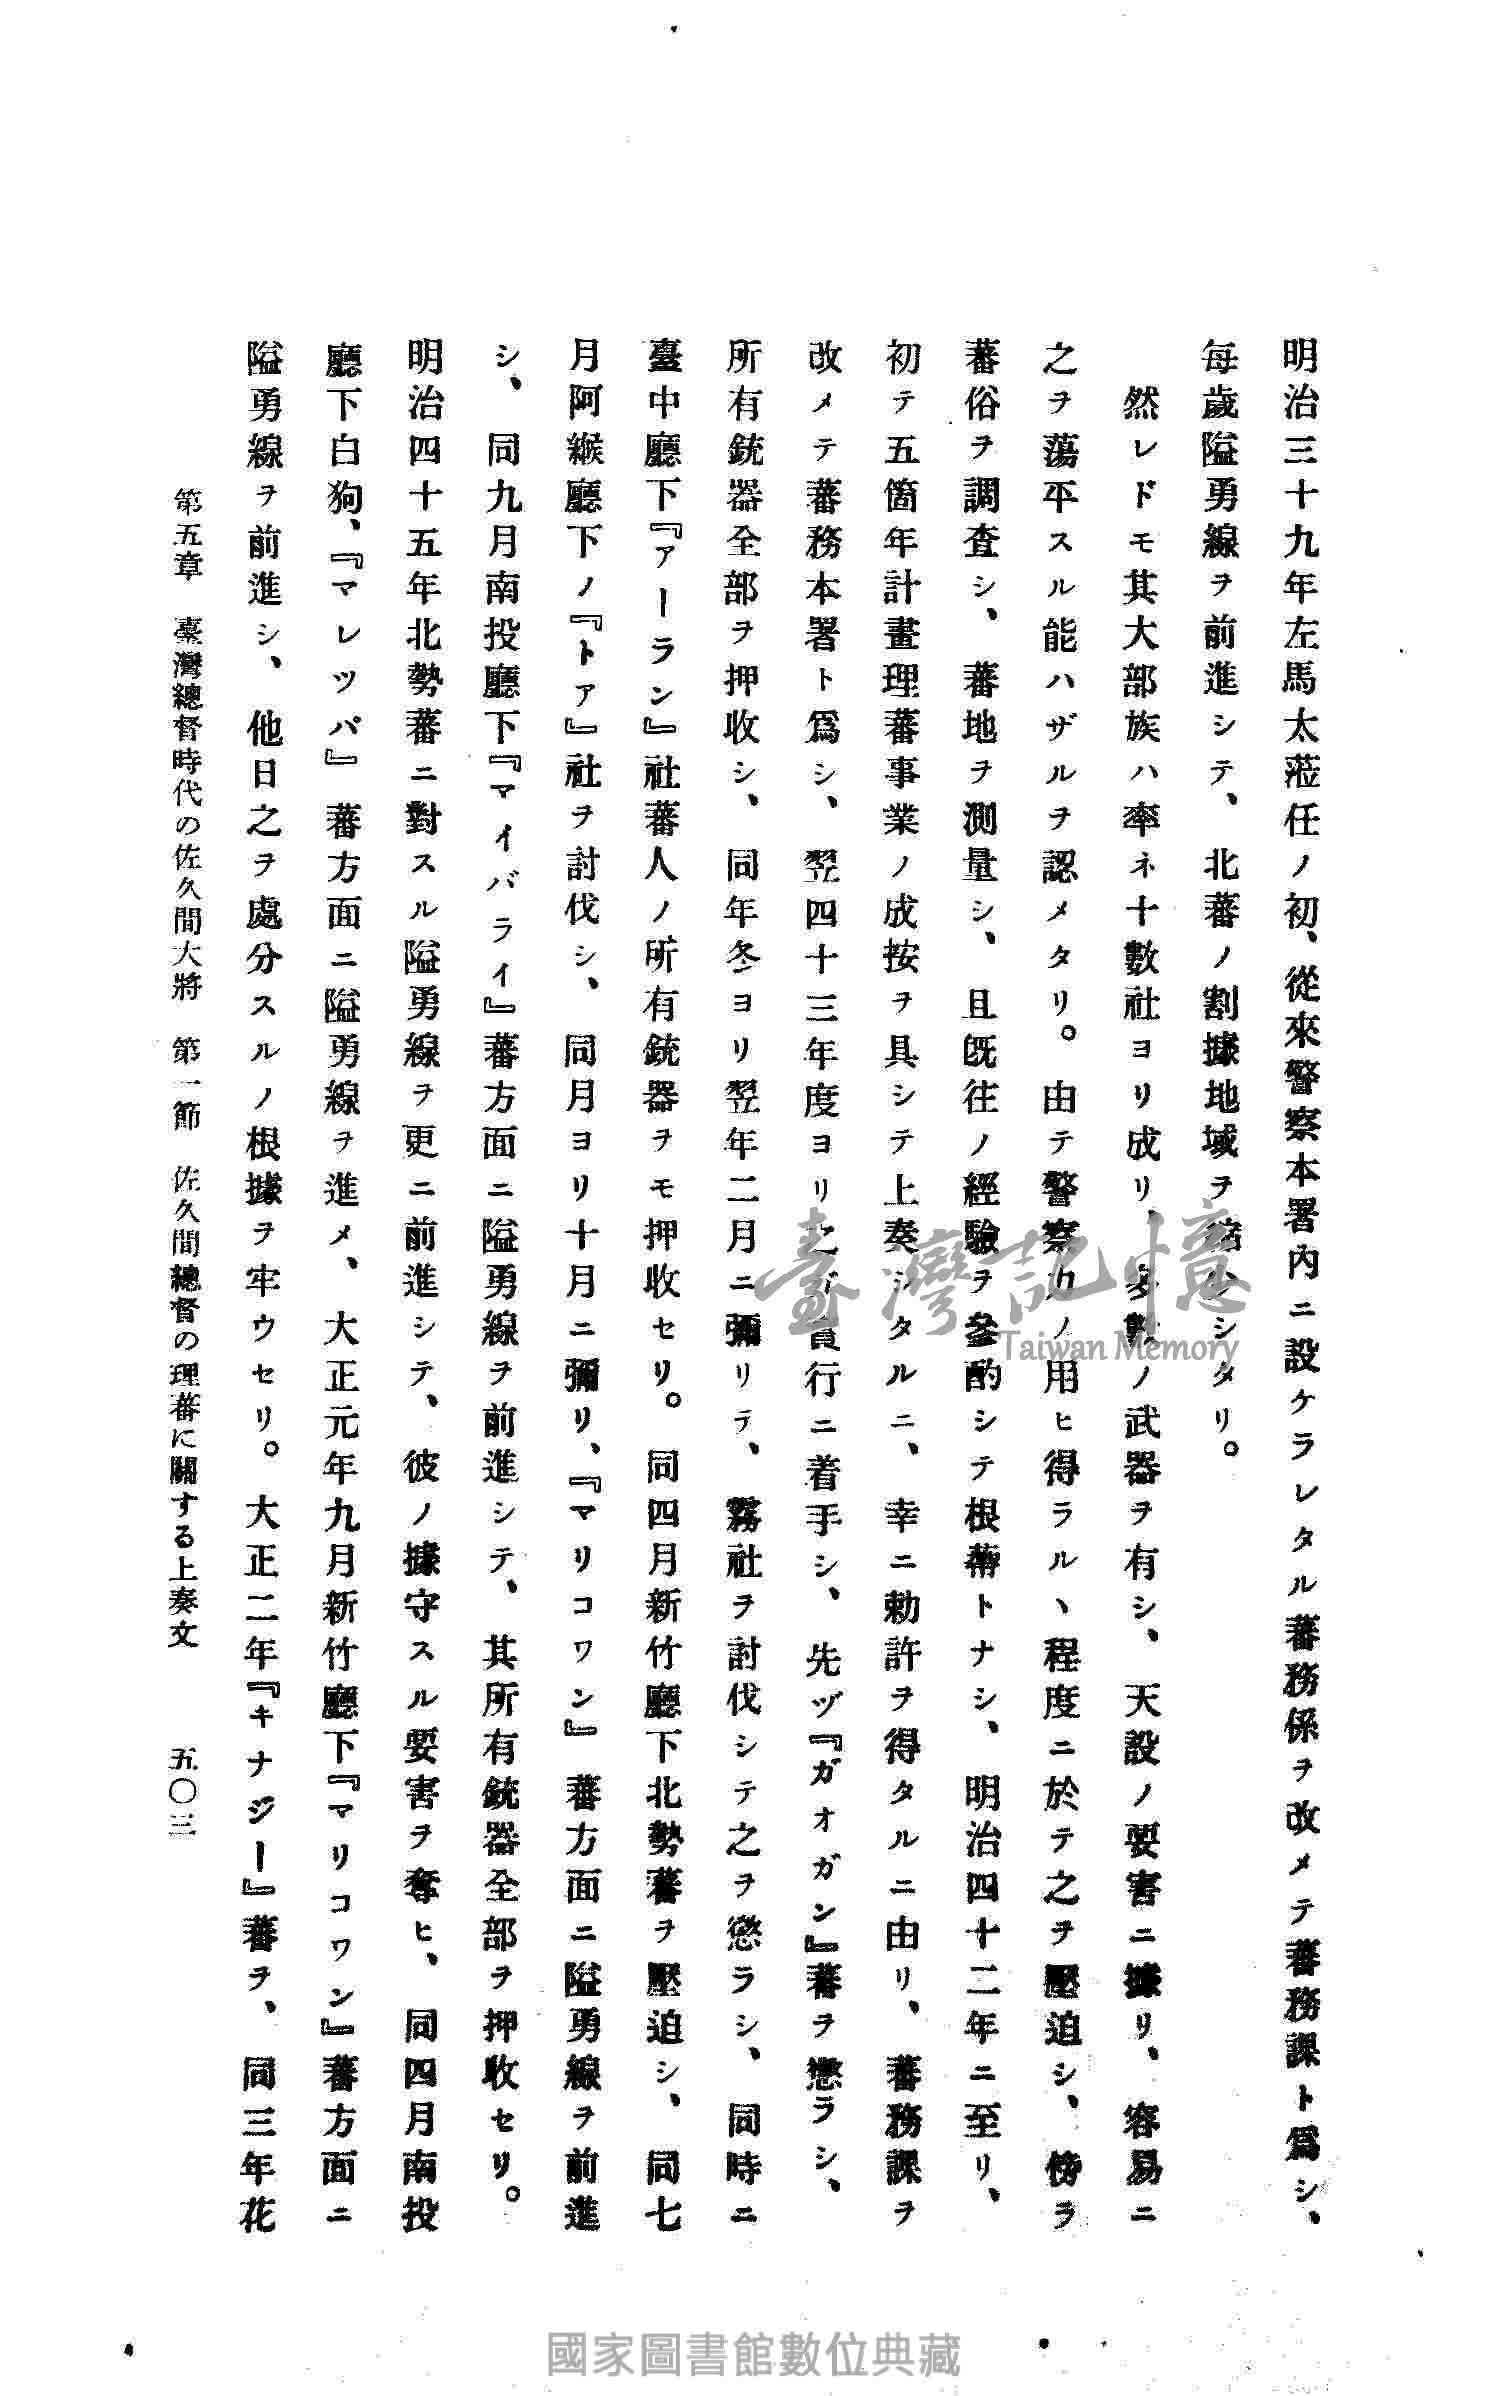 明治三十九年左馬太蒞任ノ初、從來警察本署內ニ設ケラレタル蕃務係ヲ改メテ蕃務課ト爲シ、
每歲隘勇線ヲ前進シテ、北蕃ノ割據地域ヲ縮少シタリ。
然レドモ其大部族ハ率ネ十數社ヨリ成リ、多數ノ武器ヲ有シ、天設ノ要害ニ據リ、容易ニ
之ヲ蕩平スル能ハザルヲ認メタリ。由テ警察力ノ用ヒ得ラル丶程度ニ於テ之ヲ壓迫シ、傍ラ
蕃俗ヲ調査シ、蕃地ヲ測量シ、且既往ノ經驗ヲ參酌シテ根蔕トナシ、明治四十二年ニ至リ、
初テ五箇年計畫理蕃事業ノ成按ヲ具シテ上奏シタルニ、幸ニ勅許ヲ得タルニ由リ、蕃務課ヲ
改メテ蕃務本署ト爲シ、翌四十三年度ヨリ之ガ實行ニ着手シ、先ヅ『ガオガン』蕃ヲ懲ラシ、
所有銃器全部ヲ押收シ、同年冬ヨリ翌年二月ニ彌リテ、霧社ヲ討伐シテ之ヲ懲ラシ、同時ニ
臺中廳下『アーラン』社蕃人ノ所有銃器ヲモ押收セリ。同四月新竹廳下北勢蕃ヲ壓迫シ、同七
月阿緱廳下ノ『トア』社ヲ討伐シ、同月ヨリ十月ニ彌リ、『マリコワン』蕃方面ニ隘勇線ヲ前進
シ、同九月南投廳下『マイバライ』蕃方面ニ隘勇線ヲ前進シテ、其所有銃器全部ヲ押收セリ。
明治四十五年北勢蕃ニ對スル隘勇線ヲ更ニ前進シテ、彼ノ據守スル要害ヲ奪ヒ、同四月南投
廳下白狗、『マレツパ』蕃方面ニ隘勇線ヲ進メ、大正元年九月新竹廳下『マリコワン』蕃方面ニ
隘勇線ヲ前進シ、他日之ヲ處分スルノ根據ヲ牢ウセリ。大正二年『キナジー』蕃ヲ、同三年花
第五章 臺灣總督時代の佐久間大將 第一節 佐久間總督の理蕃に關する上奏文 五〇三
臺灣記憶
Taiwan Memory
國家圖書館數位典藏